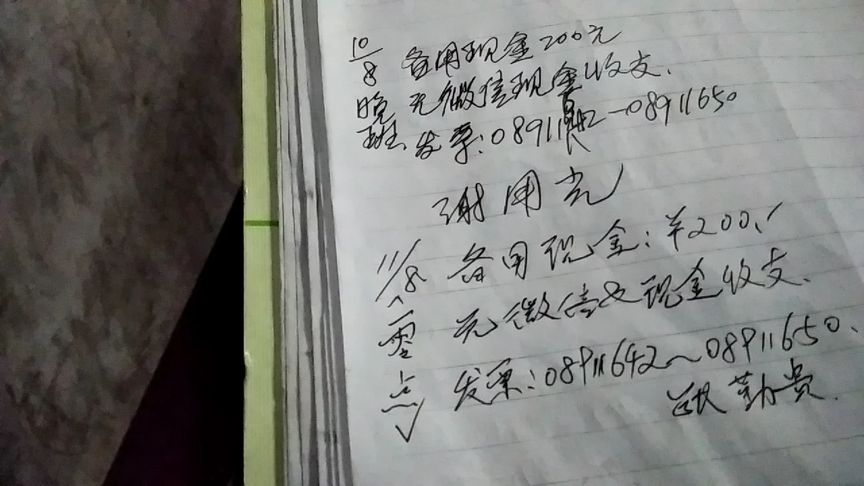 10/8 备用现金200元
晚 无微信现金收支.
班. 发票:08911642—08911650
谢用光
11/8 备用现金:¥200.
零 无微信及现金收支.
点 发票:08911642~08911650.
勤贵.